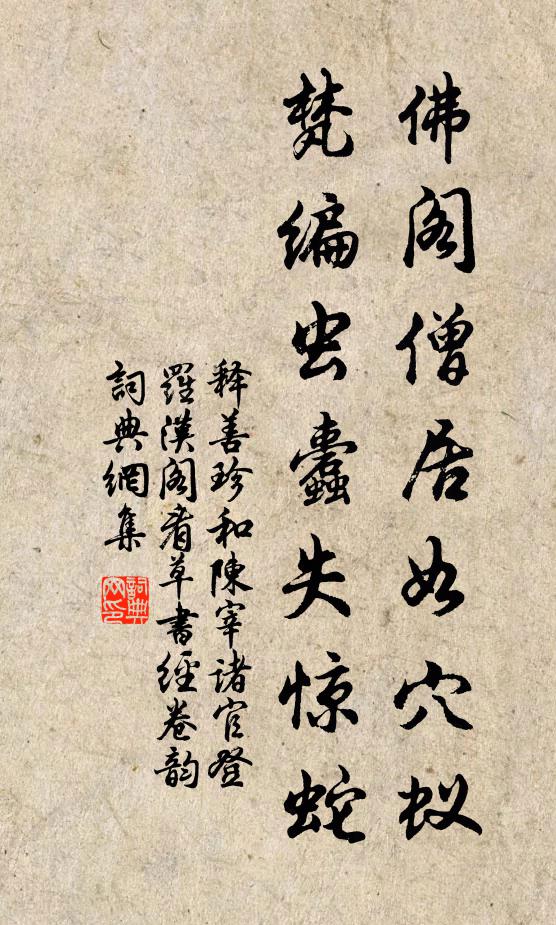 佛阁僧居如穴蚁
梵编虫蠹失惊蛇
释善珍和陈宰诸官登
羅漢阁看草書經卷韵
詞典網集
詞典
网印